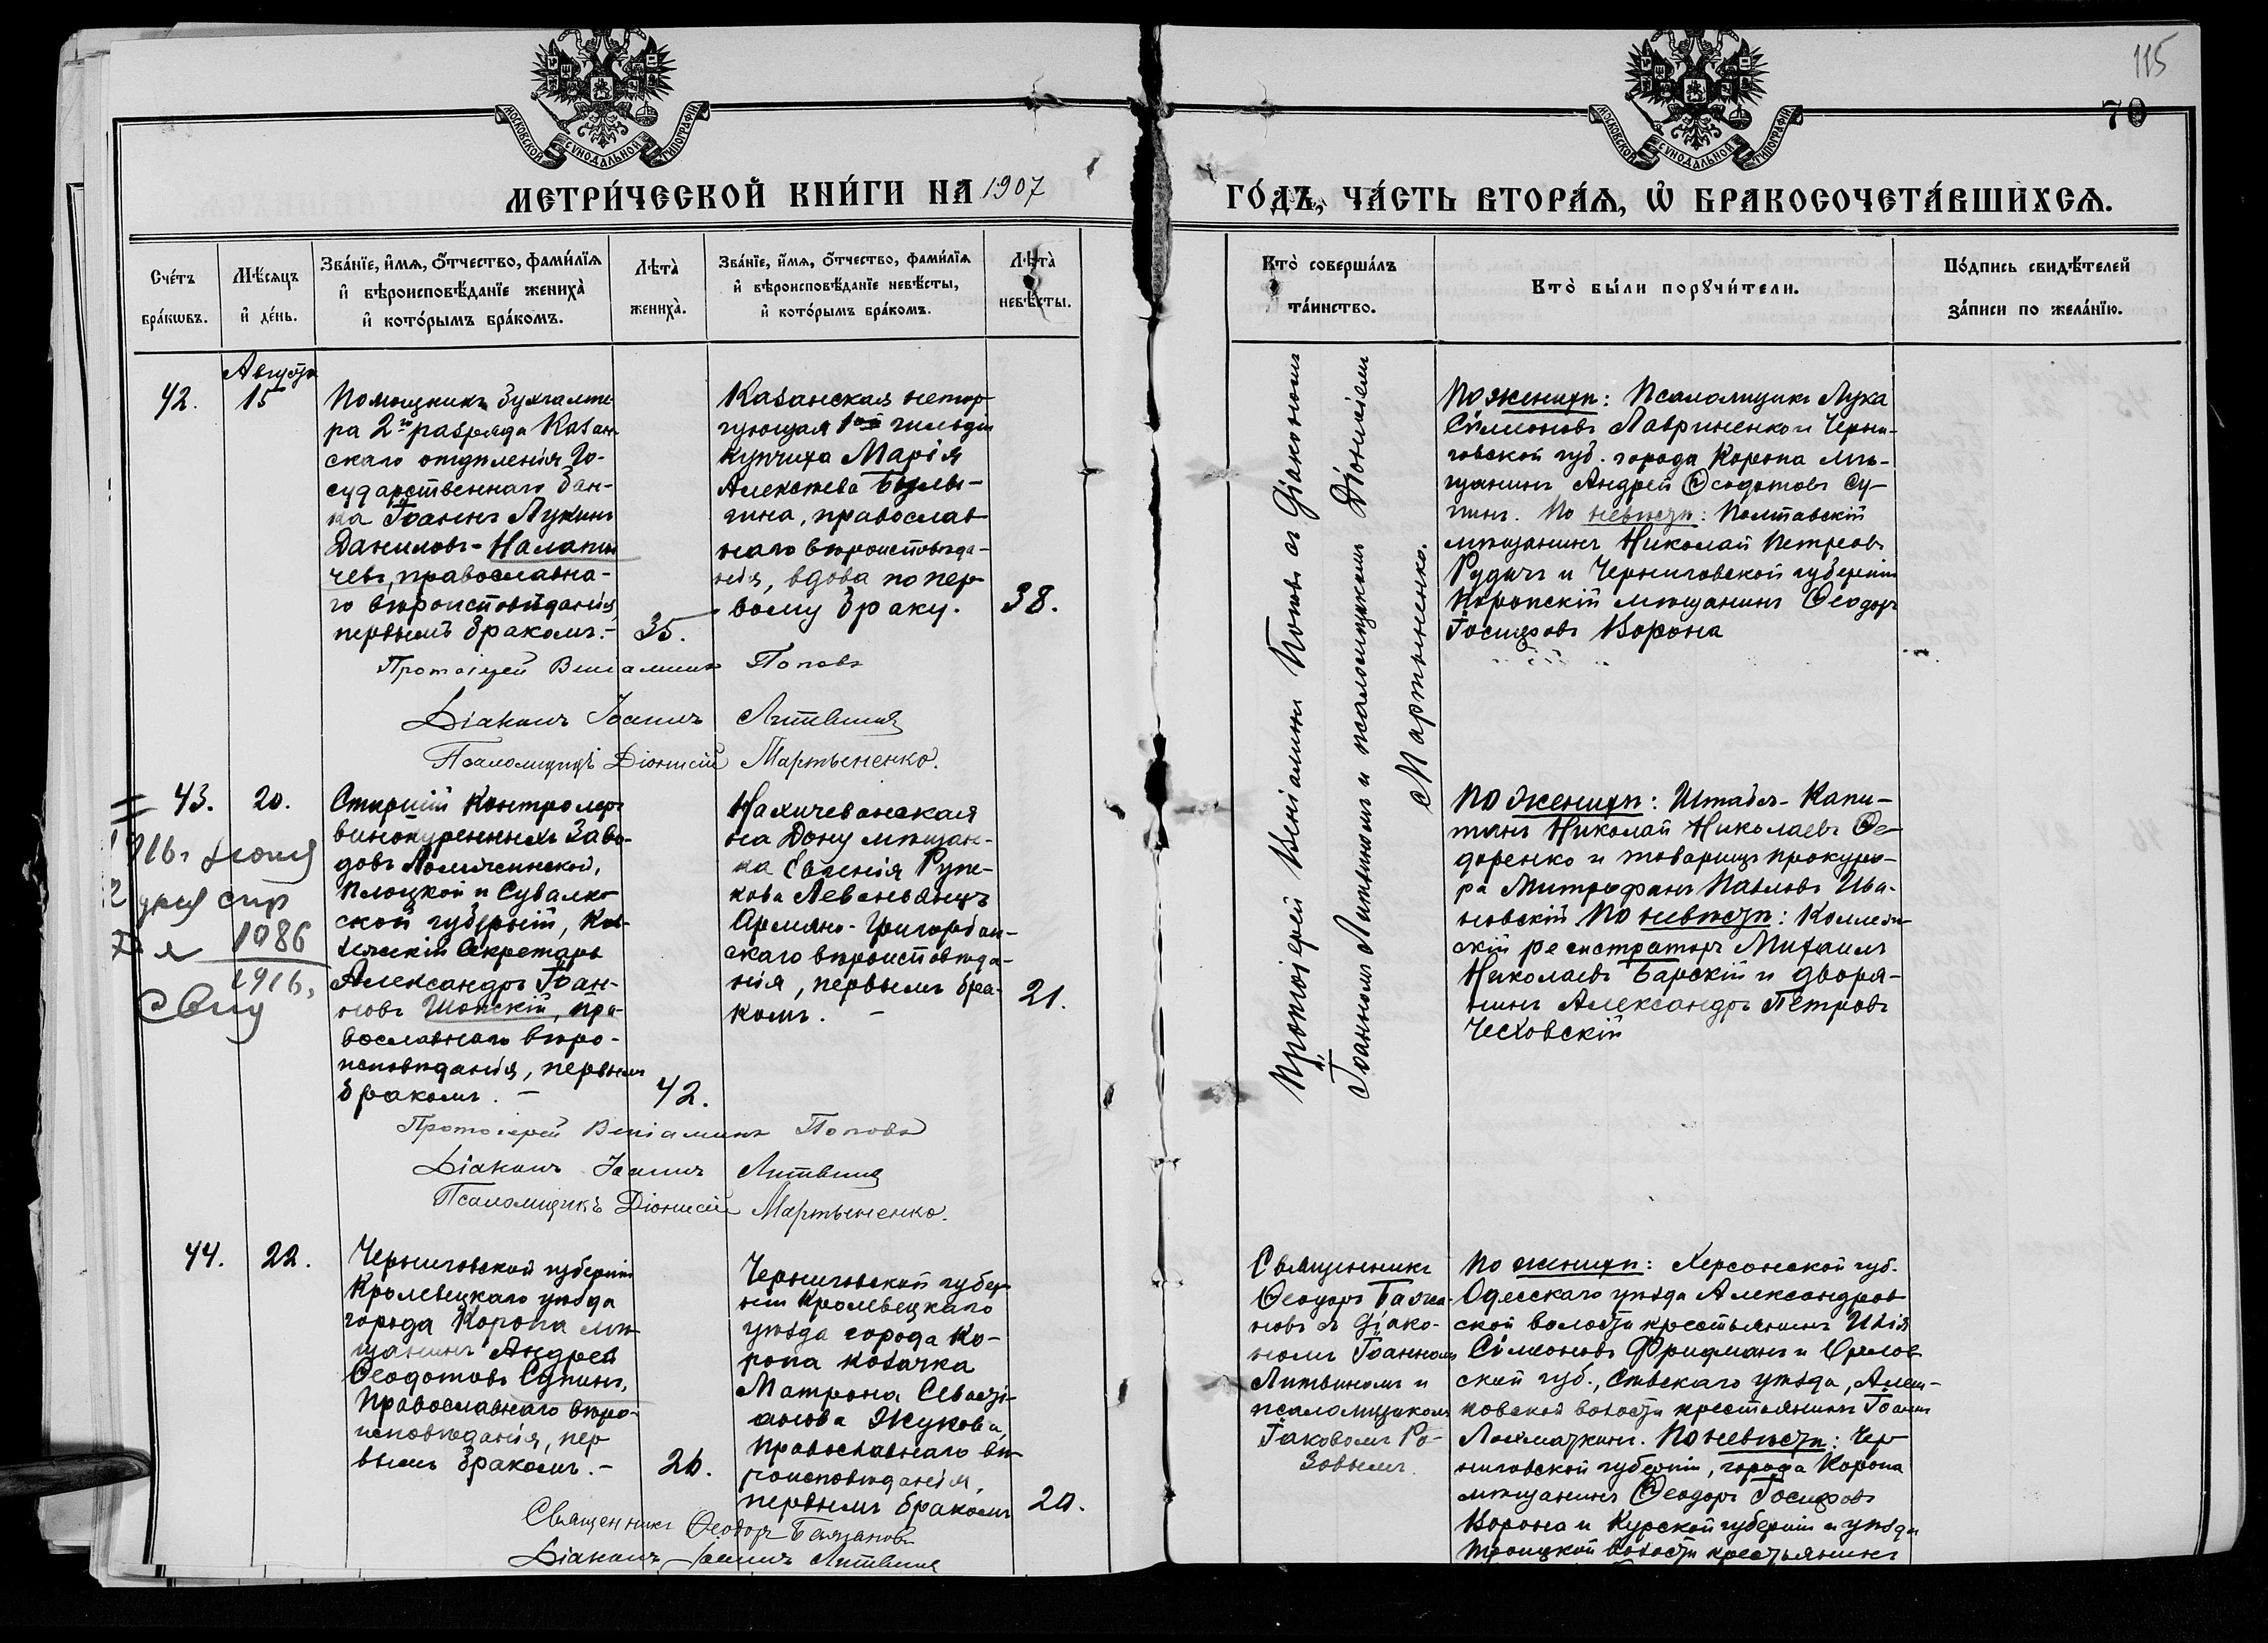 115
70
МОСКОВСКОЙ СѴНОДАЛЬНОЙ ТИПОГРАФІИ
МОСКОВСКОЙ СѴНОДАЛЬНОЙ ТИПОГРАФІИ
МЕТРИ́ЧЕСКОЙ КНИ́ГИ НА 1907
ГО́ДЪ, ЧА́СТЬ ВТОРА́Ѧ, Ѡ҆ БРАКОСОЧЕТА́ВШИХСѦ.
Сче́тъ бра́кѡвъ.
Мѣ́сѧцъ и҆ де́нь.
Зва́нїе, и҆́мѧ, ѻ҆́тчество, фами́лїѧ
и҆ вѣроисповѣ́данїе жениха̀
и҆ кото́рымъ бра́комъ.
Лѣта̀ жениха̀.
Зва́нїе, и҆́мѧ, ѻ҆́тчество, фами́лїѧ
и҆ вѣроисповѣ́данїе невѣ́сты,
и҆ кото́рымъ бра́комъ.
Лѣта̀ невѣ́сты.
Кто̀ соверша́лъ
та́инство.
Кто̀ бы́ли порꙋчи́тели.
По́дпись свидѣ́телей
за́писи по жела́нїю.
Августа
42.
15
Помощникъ бухгалте-
ра 2го разряда Казан-
скаго отдѣленія Го-
сударственнаго Бан-
ка Іоаннъ Лукинъ
Даниловъ-Налапы
чевъ, православна-
го вѣроисповѣданія,
первымъ бракомъ.-
35.
Казанская неторг
гующая 1ой гильдіи
купчиха Марія
Алексѣева Булы-
гина, православ-
наго вѣроисповѣда-
нія, вдова по пер-
вому браку.
38.
Протоіерей Веніаминъ Поповъ
Діаконъ Іоаннъ Литвинъ
Псаломщикъ Діонисій Мартыненко.
Протоіерей Веніаминъ Поповъ съ діакономъ
Іоанномъ Литвиномъ и псаломщикомъ Діонисіемъ
Мартыненко.
По женихѣ: Псаломщикъ Лука
Сѵмеоновъ Лавриненко и Черни-
говской губ. города Коропа мѣ-
щанинъ Андрей Ѳеодотовъ Су-
пинъ. По невѣстѣ: Полтавскій
мѣщанинъ Николай Петровъ
Рудичъ и Черниговской губерніи
Коропскій мѣщанинъ Ѳеодоръ
Іосифовъ Ворона
43.
20.
Старшій Контролеръ
винокуренныхъ заво-
довъ Ломжинской,
Плоцкой и Сувалк-
ской губерній, Кол-
лежскій Секретарь
Александръ Іоан-
новъ Шонскій, пра-
вославнаго вѣро-
исповѣданія, первымъ
бракомъ. -
42.
Нахичеванская
на Дону мѣщан-
ка Евгенія Рупе-
нова Левоньянцъ
Армяно-Григоріан-
скаго вѣроисповѣда-
нія, первымъ бра-
комъ. -
21.
1086
1916.
По женихѣ: Штабсъ-Капи-
танъ Николай Николаевъ Ѳе-
доренко и товарищъ прокуро-
ра Митрофанъ Павловъ Ива-
новскій. По невѣстѣ: Коллеж-
скій регистраторъ Михаилъ
Николаевъ Барскій и дворя-
нинъ Александръ Петровъ
Чеховскій
Протоіерей Веніаминъ Поповъ
Діаконъ Іоаннъ Литвинъ
Псаломщикъ Діонисій Мартыненко.
44.
22.
Черниговской губерніи
Кролевецкаго уѣзда
города Коропа мѣ-
щанинъ Андрей
Ѳеодотовъ Супинъ,
православнаго вѣро-
исповѣданія, пер
вымъ бракомъ.-
26.
Черниговской губер-
ніи Кролевецкаго
уѣзда города Ко-
ропа козачка
Матрона Севасті-
анова Жукова,
православнаго вѣ-
роисповѣданія,
первымъ бракомъ
20.
Священникъ
Ѳеодоръ Базжа-
новъ съ діако-
номъ Іоанномъ
Литвиномъ и
псаломщикомъ
Іаковомъ Ро-
зовымъ.
По женихѣ: Херсонской губ.
Одесскаго уѣзда Александров-
ской волости крестьянинъ Илія
Сѵмеоновъ Фридманъ и Орлов-
ской губ., Сѣвскаго уѣзда,
волости крестьянинъ Іоаннъ
По невѣстѣ: Чер-
ниговской губерніи, города Коропа
мѣщанинъ Ѳеодоръ Іосифовъ
Ворона и Курской губерніи и уѣзда
Троицкой волости крестьянинъ
Священникъ Ѳеодоръ
Діаконъ Іоаннъ Литвинъ